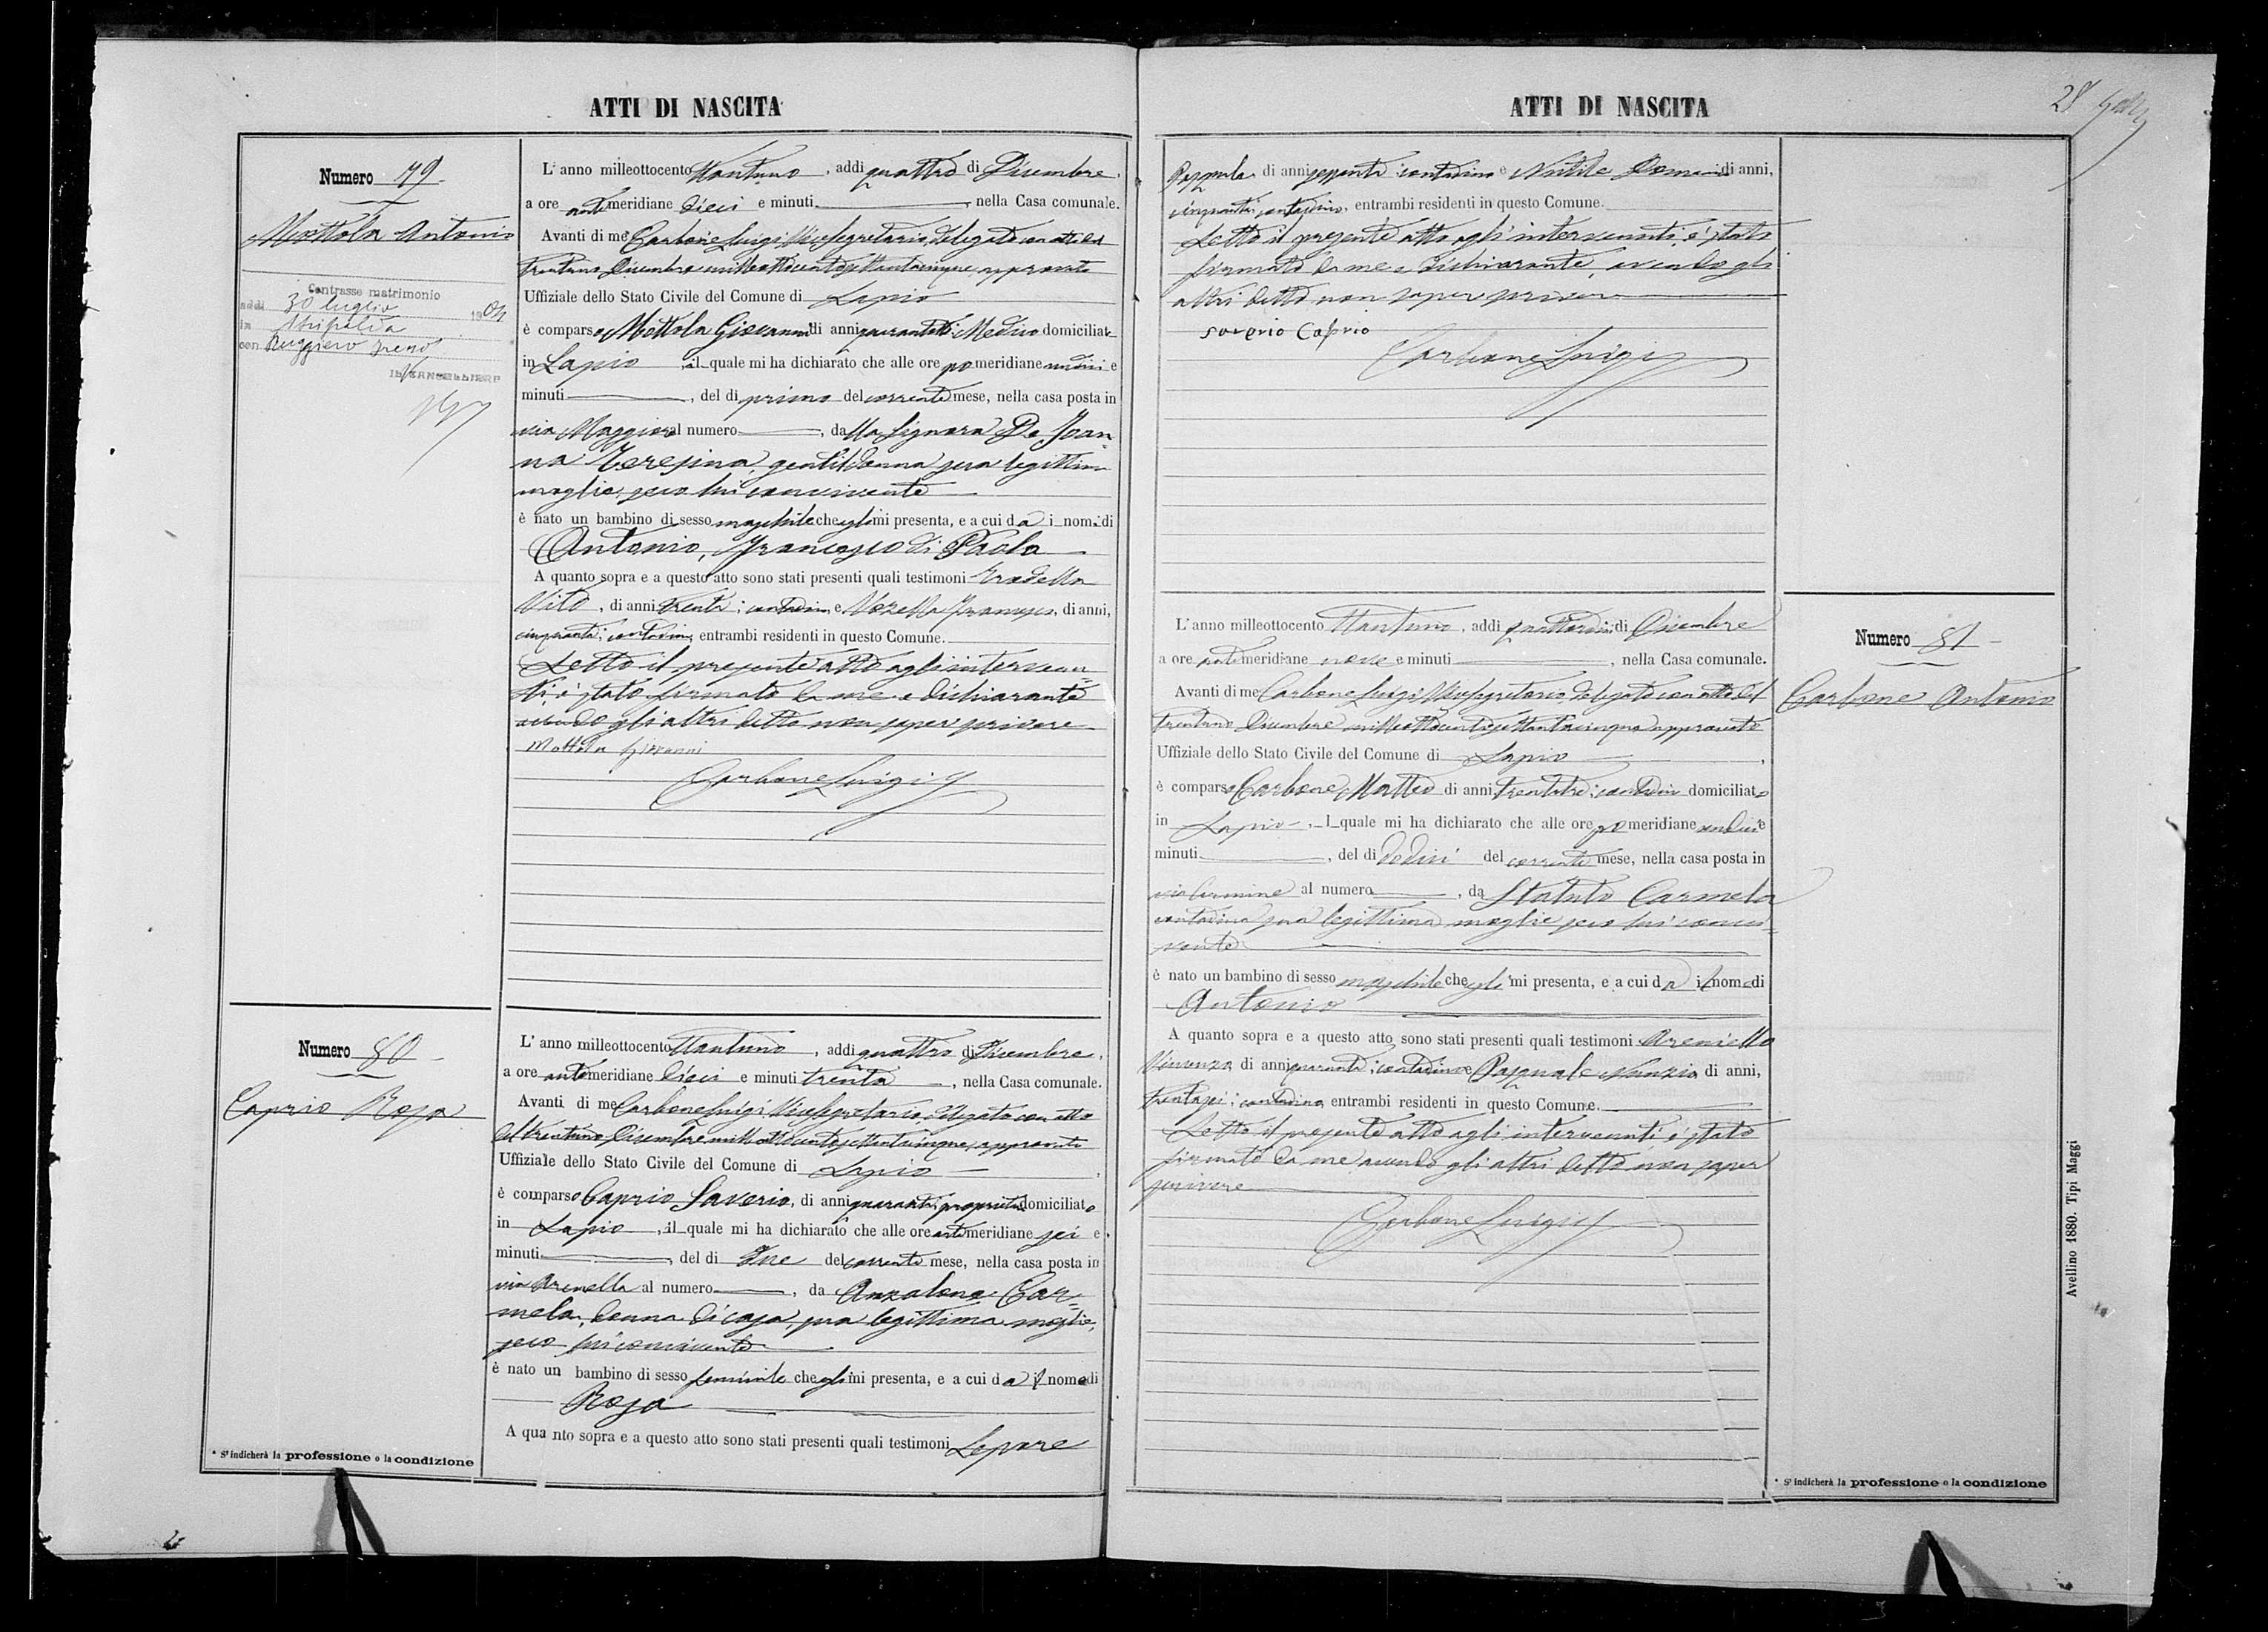 ATTI DI NASCITA
Numero 79
Mottola Antonio
Contrasse matrimonio
addì 30 luglio 1904
in Atripalda
con Ruggiero Irene
IL CANCELLIERE
L' anno milleottocento ttantuno, addi quattro di Dicembre,
a ore anti meridiane dieci e minuti , nella Casa comunale.
Avanti di me Carbone Luigi Vicesegretario, delegato con atto del
trentuno Dicembre milleottocentosettantacinque, approvato
Uffiziale dello Stato Civile del Comune di Lapio
è comparso Mottola Giovanni di anni Medico domiciliato
in Lapio , il quale mi ha dichiarato che alle ore po meridiane undici e
minuti , del di primo del corrente mese, nella casa posta in
via Maggiore al numero , dalla Signora De Joan=
na Teresina, gentildonna sua legittima
moglie, seco lui convivente
è nato un bambino di sesso maschile che egli mi presenta, e a cui dà i nomi di
Antonio, Francesco di Paola
A quanto sopra e a questo atto sono stati presenti quali testimoni
Vito, di anni trenta, contadino e Francesco, di anni,
cinquanta, contadino, entrambi residenti in questo Comune.
Letto il presente atto agli interven=
ti, è stato firmato da me e dichiarante
avendo gli altri detto non saper scrivere
Mottola Giovanni
Carbone Luigi
Numero 80
Caprio Rosa
L' anno milleottocento ttantuno, addi quattro di Dicembre,
a ore anti meridiane dieci e minuti trenta , nella Casa comunale.
Avanti di me Carbone Luigi Vicesegretario, delegato con atto
del trentuno Dicembre milleottocentosettantacinque, approvato
Uffiziale dello Stato Civile del Comune di Lapio,
è comparso Caprio Saverio, di anni quaranta, domiciliato
in Lapio , il quale mi ha dichiarato che alle ore anti meridiane sei e
minuti , del di due del corrente mese, nella casa posta in
via Arenella al numero , da Anzalone Car=
mela, donna di casa, sua legittima moglie,
seco lui convivente
è nato un bambino di sesso femminile che egli mi presenta, e a cui dà il nome di
Rosa
A quanto sopra e a questo atto sono stati presenti quali testimoni Lepore
* S' indicherà la professione o la condizione
ATTI DI NASCITA
di anni sessanta contadino e di anni,
cinquanta, contadino, entrambi residenti in questo Comune.
Letto il presente atto agli intervenuti, è stato
firmato da me e dichiarante, avendo gli
altri detto non saper scrivere
Saverio Caprio
Carbone Luigi
Numero 81
Carbone Antonio
L' anno milleottocento ttantuno, addi quattordici di Dicembre
a ore anti meridiane nove e minuti , nella Casa comunale.
Avanti di me Carbone Luigi Vicesegretario, delegato con atto del
trentuno Dicembre milleottocentosettantacinque approvato
Uffiziale dello Stato Civile del Comune di Lapio,
è comparso Carbone Matteo di anni trentatre, contadino domiciliato
in Lapio, l quale mi ha dichiarato che alle ore po meridiane undici e
minuti , del di dodici del corrente mese, nella casa posta in
via al numero , da Statuto Carmela
contadina sua legittima moglie seco lui convi=
vente
è nato un bambino di sesso maschile che egli mi presenta, e a cui dà il nome di
Antonio
A quanto sopra e a questo atto sono stati presenti quali testimoni
Vincenzo di anni quaranta, contadino e Pasquale Nunzio di anni,
trentasei, contadino, entrambi residenti in questo Comune.
Letto il presente atto agli intervenuti, è stato
firmato da me avendo gli altri detto non saper
scrivere
Carbone Luigi
Avellino 1880. Tipi Maggi
* S' indicherà la professione o la condizione